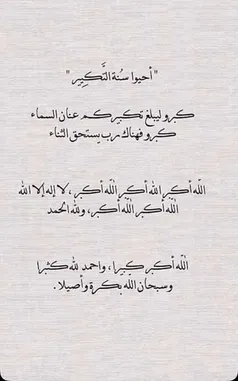 "أحيوا سُنة التَّكبِير"
كبرو ليبلغ تكبيركم عنان السماء
كبرو فهناك رب يستحق الثناء
اللّه أكبر اللّه أكبر اللّه أكبر، لا إله إلا اللّه
اللّه أكبر اللّه أكبر، وللّه الحمد
اللّه أكبر كبيرا، واحمد للّه كثيرا
وسبحان اللّه بكرة وأصيلا.